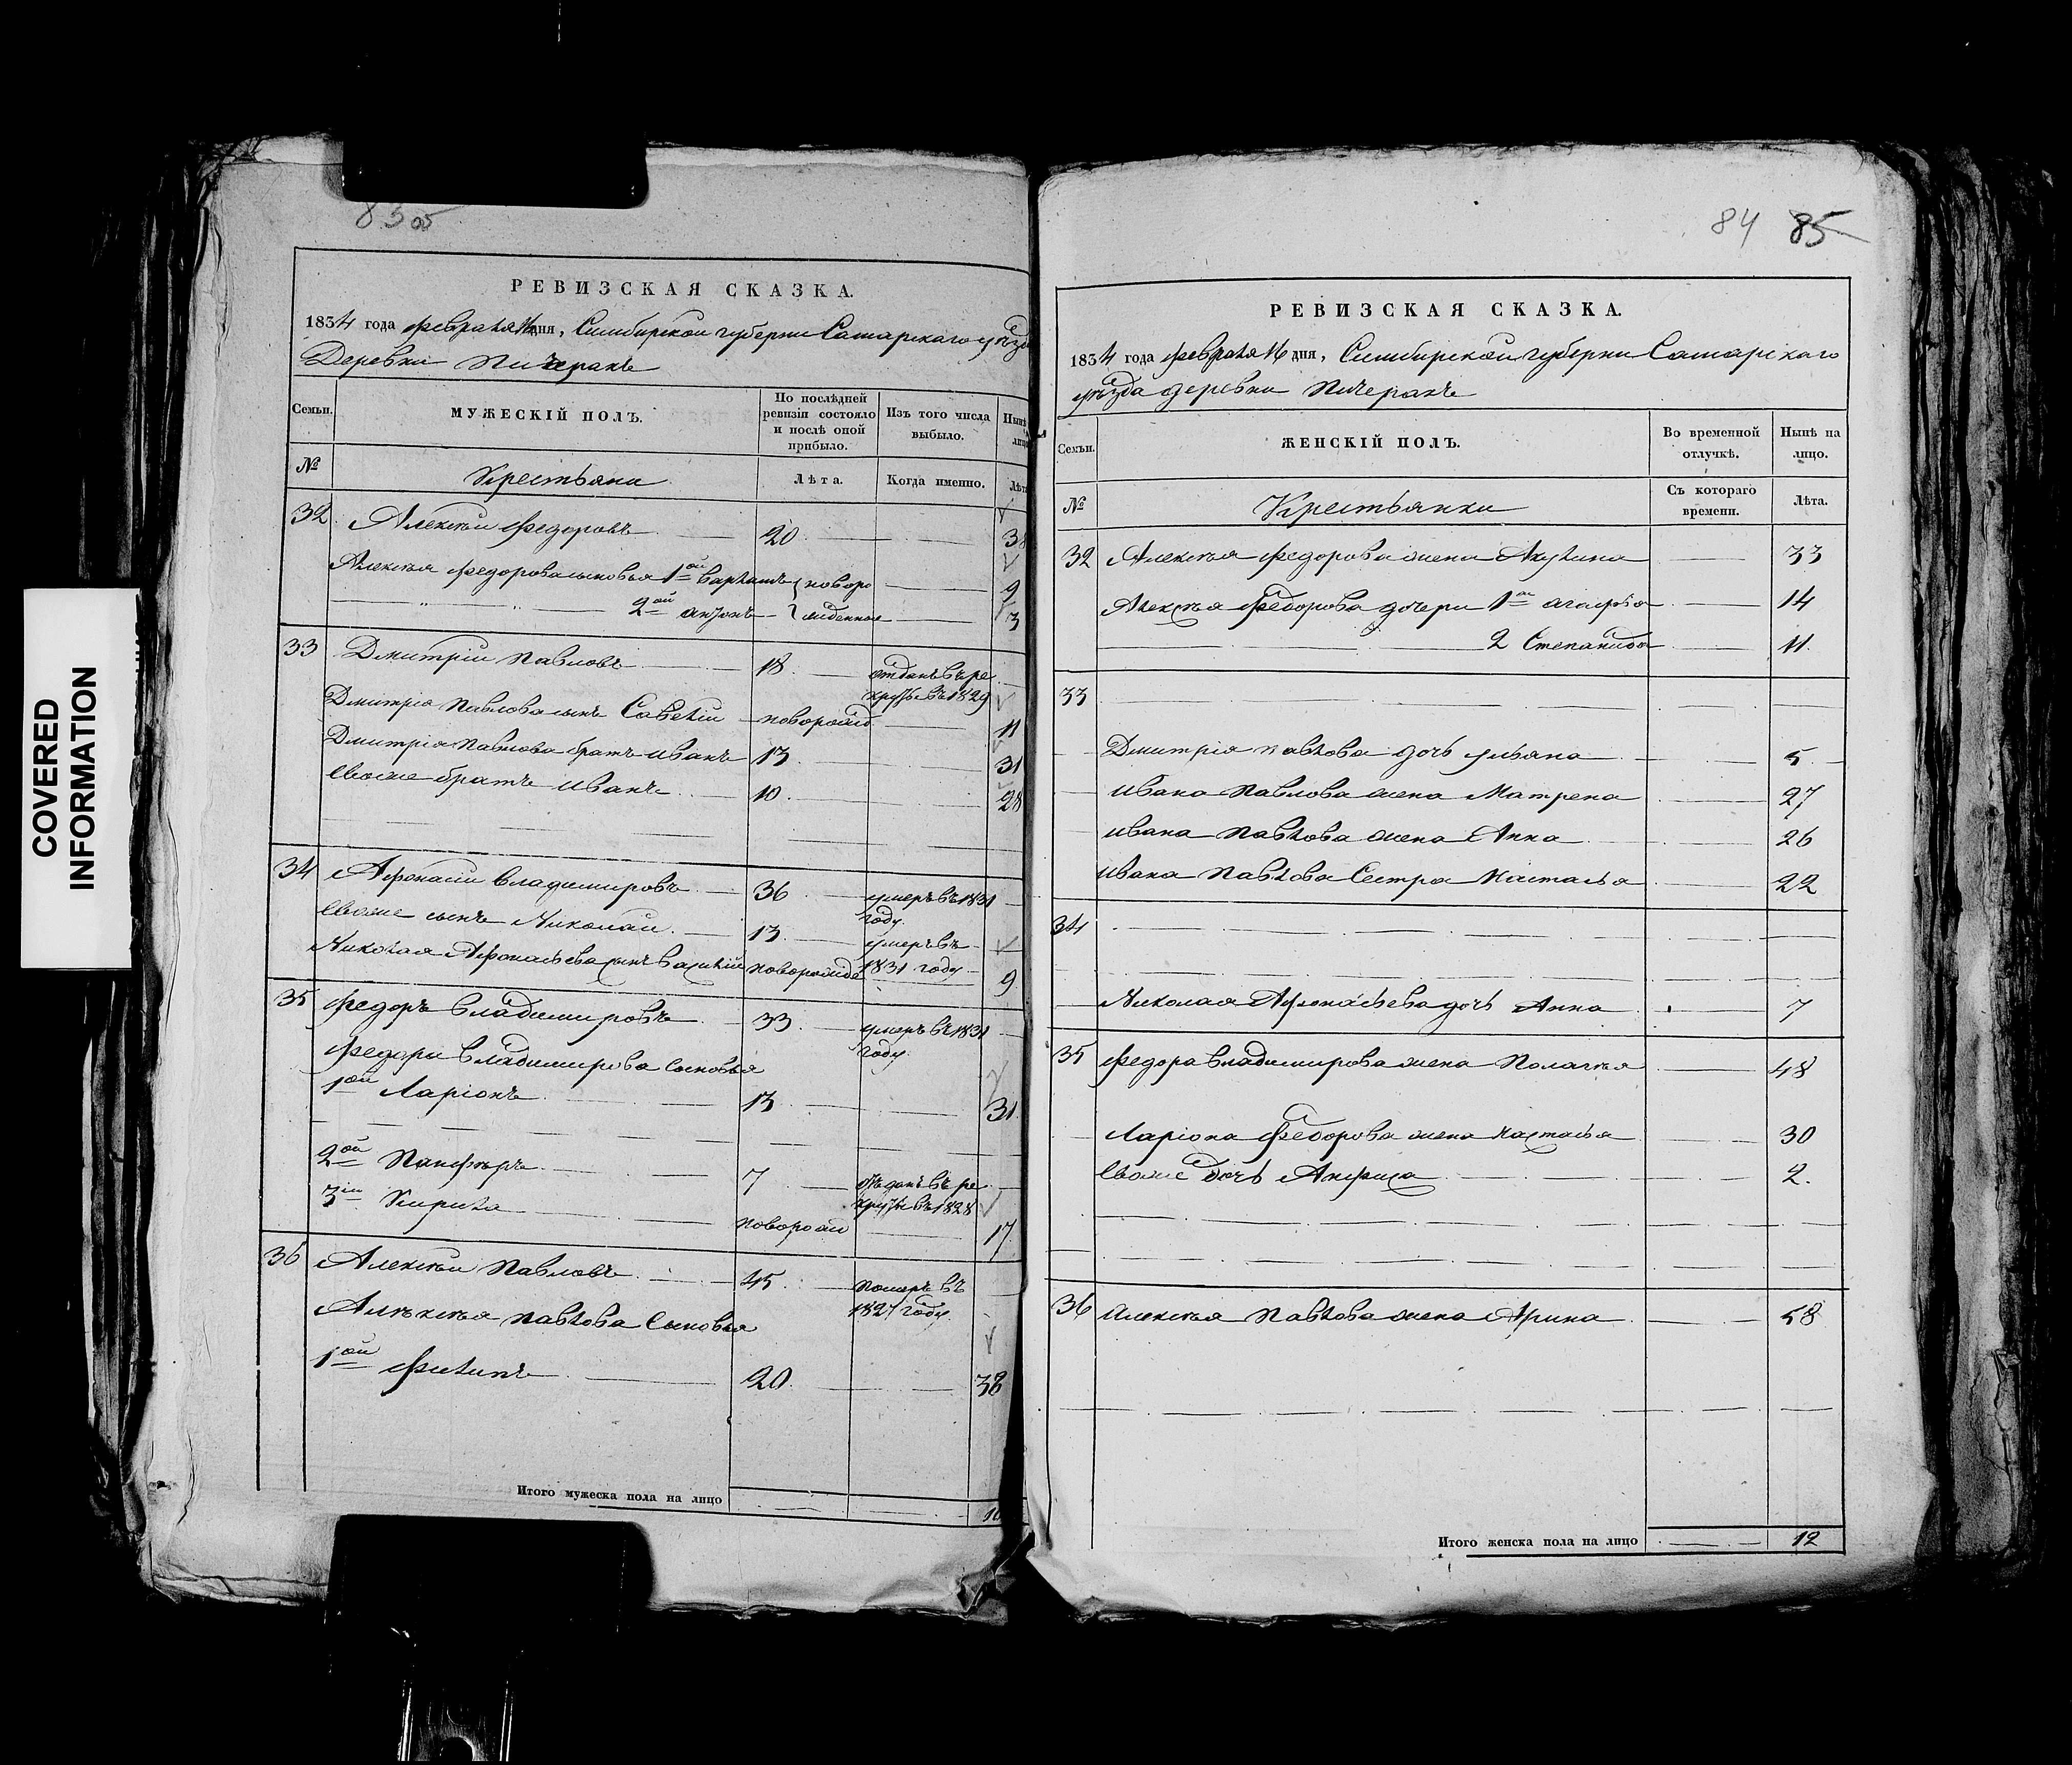 COVERED
INFORMATION
83 об
РЕВИЗСКАЯ СКАЗКА.
1834 года февраля 16 дня, Симбирской губерни Самарскаго уѣзда
Деревни Пичерахъ
Семьи.
МУЖЕСКІЙ ПОЛЪ.
По послѣдней ревизіи состояло и послѣ оной прибыло.
Изъ того числа выбыло.
Нынѣ
лицо
№
Крестьяни
Лѣта.
Когда именно.
Лѣта
32 Алексѣй Федоровъ 20
Алексѣя Федорова сыновья 1ой Варламъ новоро 9
2ой антонъ жденные 3
33 Дмитрій Павловъ 18 отданъ въ ре
круты въ 1829
Дмитрія Павлова сынъ Савелій новорожд 11
Дмитрія Павлова братъ иванъ 13 31
Евоже братъ иванъ 10 28
34 Афонасій Владимировъ 36 умеръ въ 1831
году
Евоже сынъ Николай 13 умеръ въ
1831 году
Николая Афонасьева сынъ Василій новорожде 9
35 Федоръ Владимировъ 33 умеръ въ 1831
году
Федора Владимирова сыновья
1ой Ларіонъ 13 31
2ой Панферъ 7 отъданъ въ ре
круты въ 1828
3ій Кирила новорож 17
36 Алексѣй Павловъ 45 померъ въ
1827 году
Алѣксѣя Павлова Сыновья
1ой Филипъ 20 38
Итого мужеска пола на лицо 10
84 85
РЕВИЗСКАЯ СКАЗКА.
1834 года февраля 16 дня, Симбирской губерни Самарскаго
уѣзда деревни Пичерахъ
Семьи.
ЖЕНСКІЙ ПОЛЪ.
Во временной отлучкѣ.
Нынѣ на лицо.
№
Крестьянки
Съ котораго времени.
Лѣта.
32 Алексѣя Федорова жена Акулина 33
Алексѣя Федорова дочери 1ая агафья 14
2 Степанида 11
33
Дмитрія Павлова дочь ульяна 5
ивана Павлова жена Матрена 27
ивана Павлова жена Анна 26
ивана Павлова Сестра Настасья 22
34
Николая Афонасьева дочь Анна 7
35 Федора Владимирова жена Полагѣя 48
Ларіона Федорова жена настасья 30
Евоже дочь Анфиса 2.
36 Алексѣя Павлова жена Арина 58
Итого женска пола на лицо 12